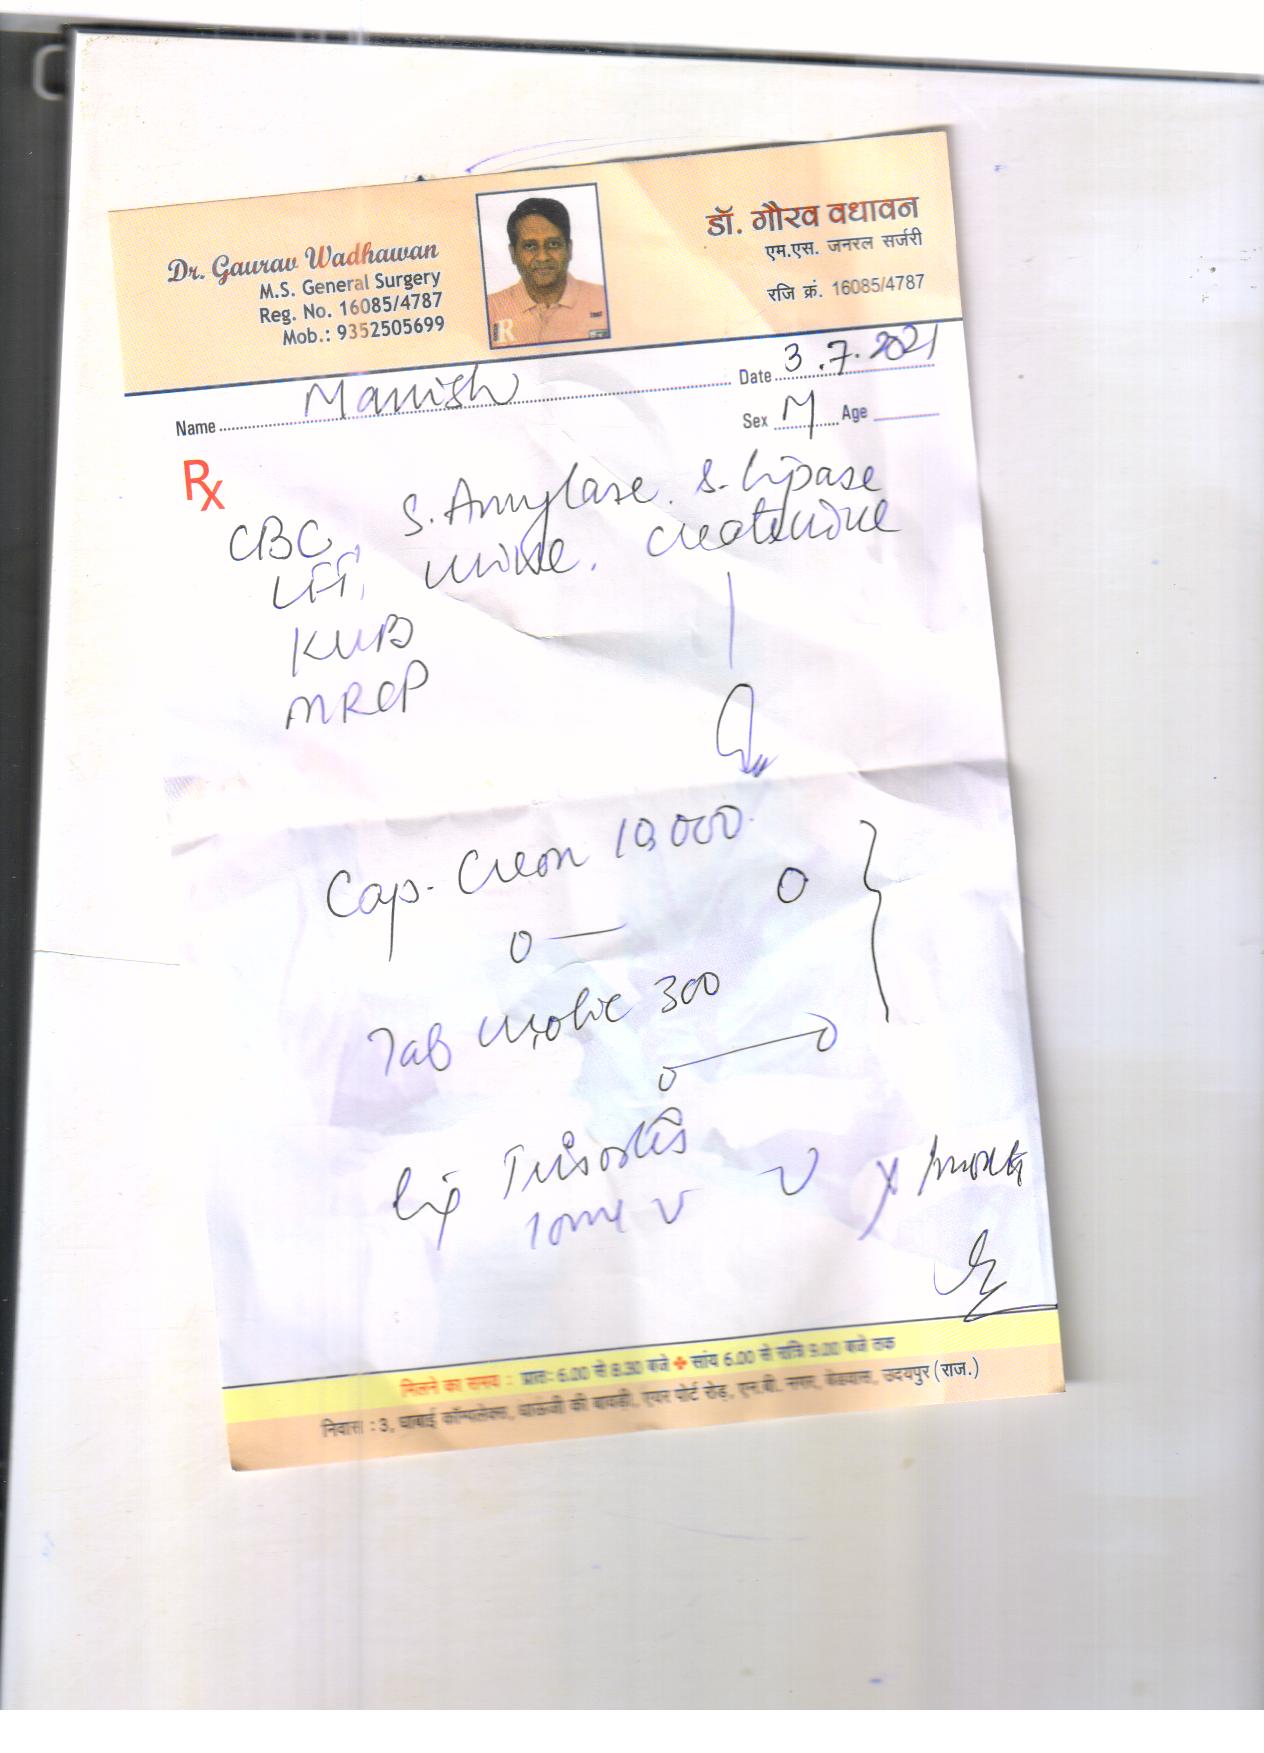 Dr. Gaurav Wadhawan
M.S. General Surgery
Reg. No. 16085/4787
Mob.: 9352505699
डॉ. गौरव वधावन
एम.एस. जनरल सर्जरी
रजि क्रं. 16085/4787
Name Manish Date 3.7.2021
Sex M Age
Rx
CBC, S. Amylase. S. Lipase
LFT, urine. creatinine
KUB
MRCP
Cap. Creon 10,000
0 — 0
Tab 300
0 — 0
10ml x 1 month
मिलने का समय : प्रातः 6.00 से 8.30 बजे सांय 6.00 से रात्रि 9.00 बजे तक
निवास : 3, धाबाई कॉम्पलेक्स, धाऊजी की बावड़ी, एयर पोर्ट रोड़, एन.बी. नगर, बेडवास, उदयपुर (राज.)